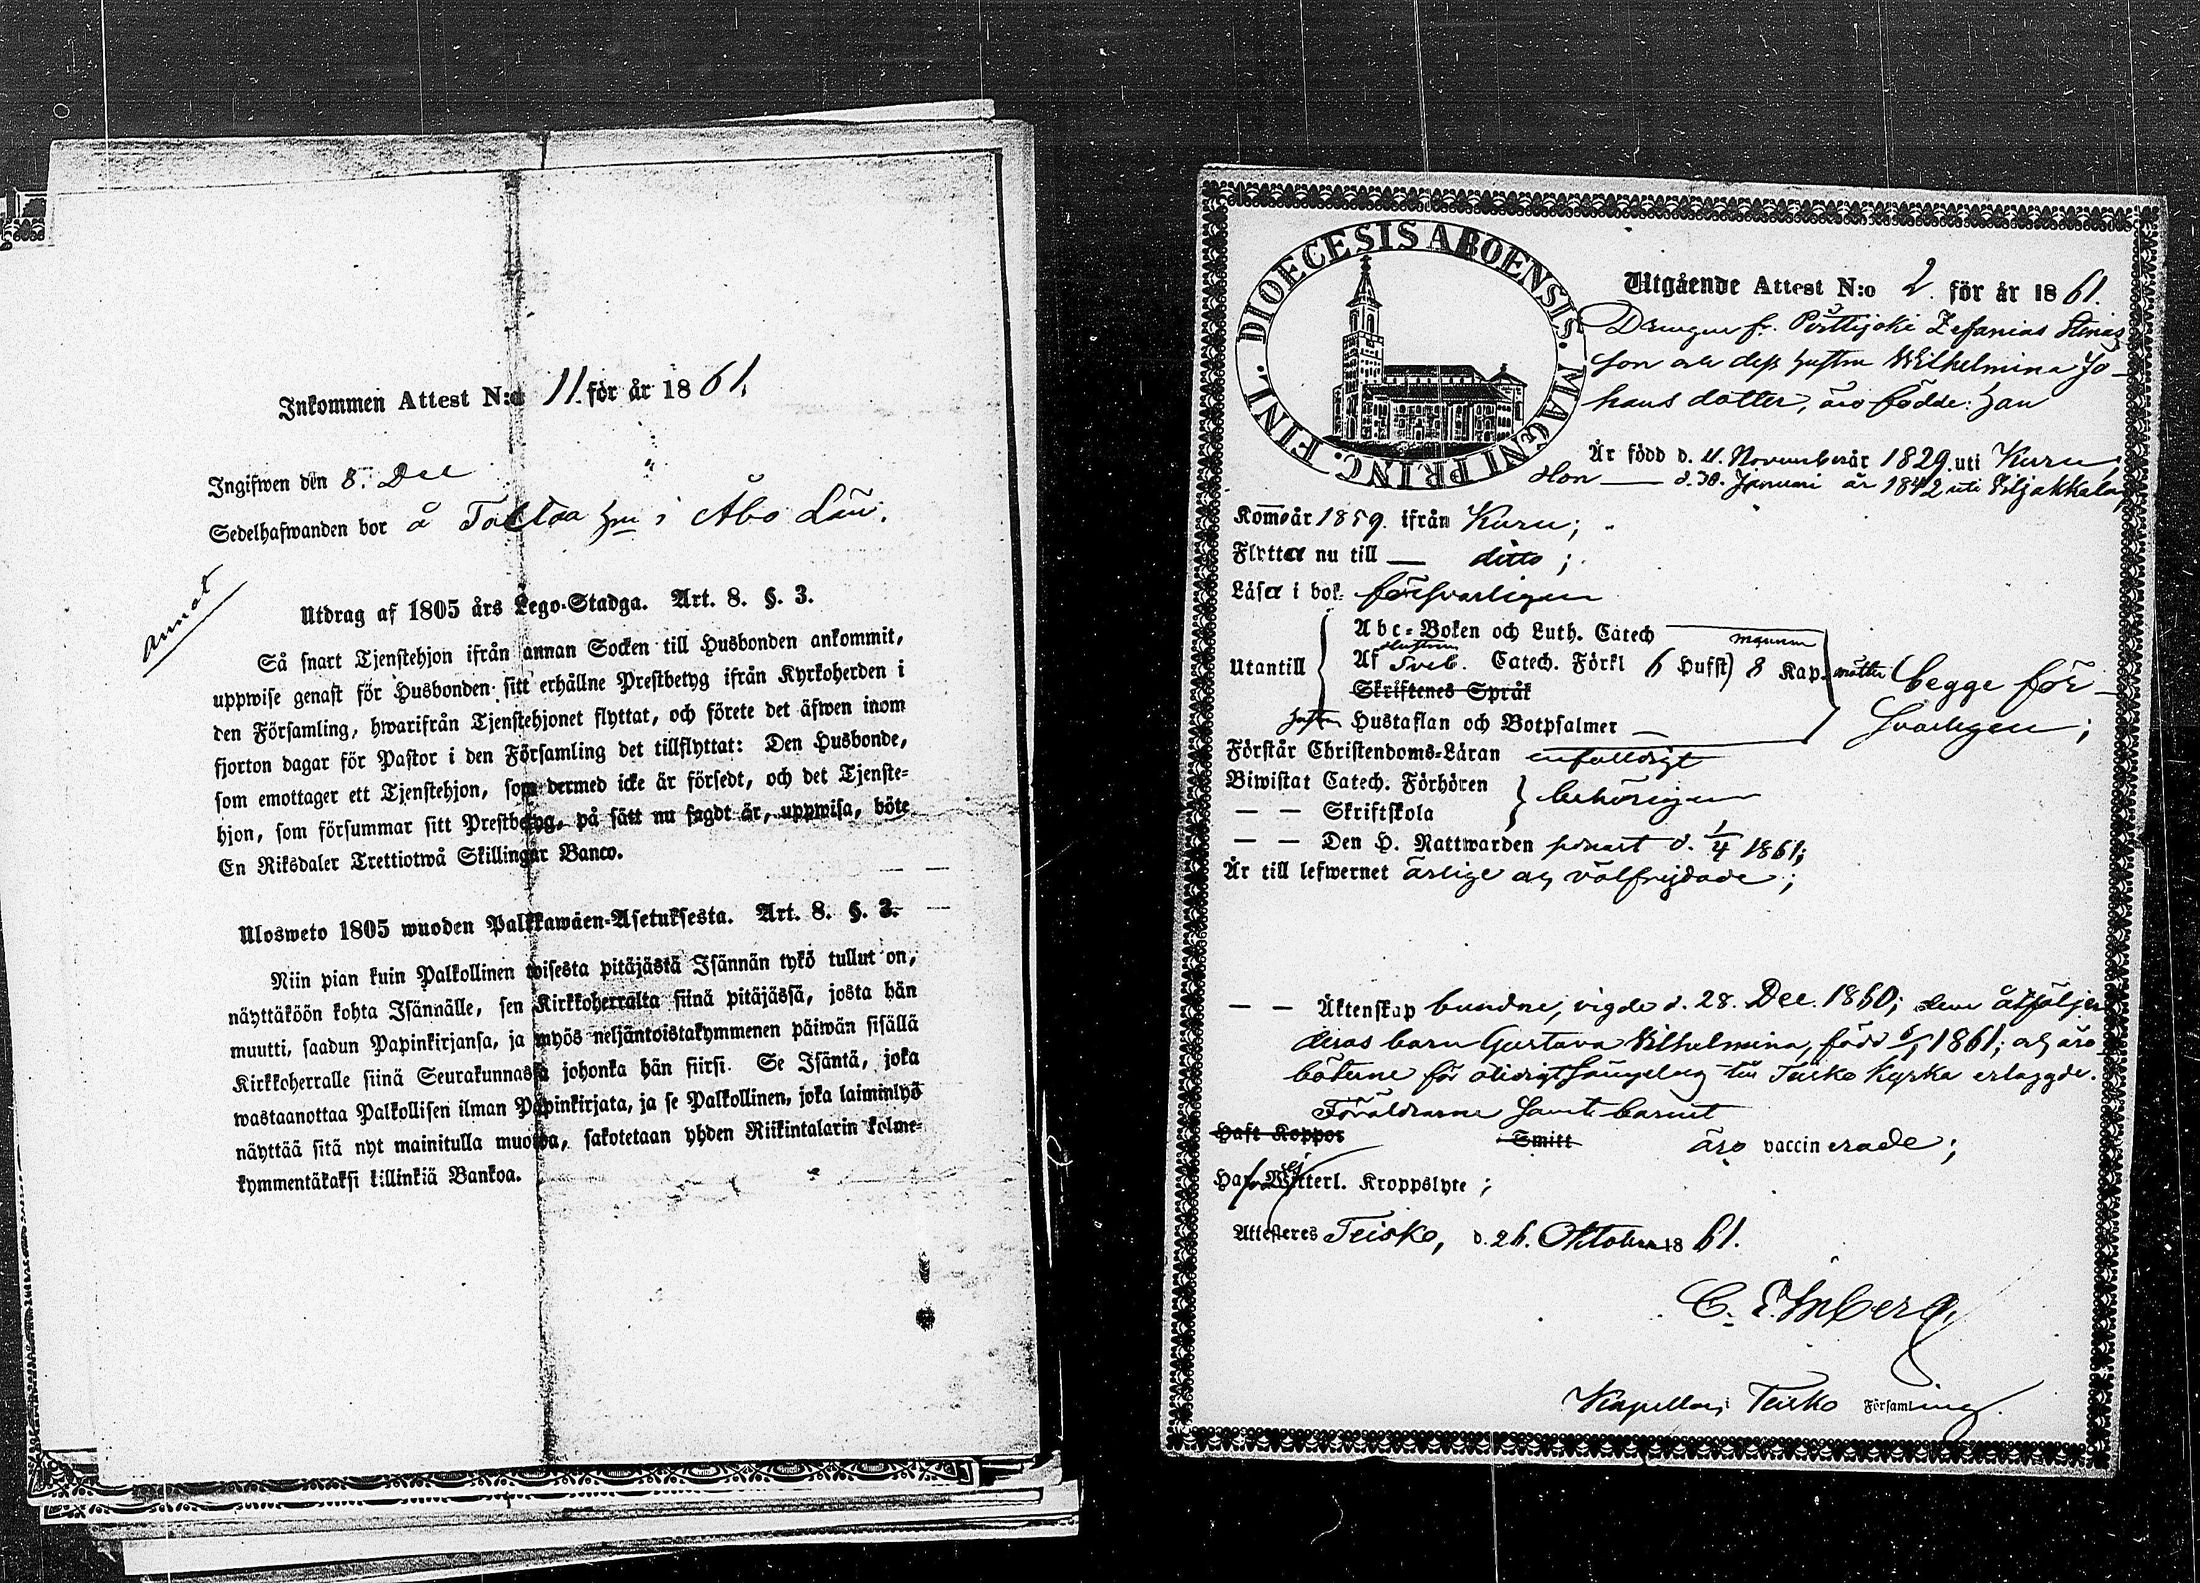 Inkommen Attest N:o 11. för år 1861.
Ingifwen den 8. Dec
Sedelhafwanden bor å Taltaa hn i Åbo Län.
annat
Utdrag af 1805 års Lego-Stadga. Art. 8. §. 3.
Så snart Tjenstehjon ifrån annan Socken till Husbonden ankommit,
uppwise genast för Husbonden sitt erhållne Prestbetyg ifrån Kyrkoherden i
den Församling, hwarifrån Tjenstehjonet flyttat, och förete det äfwen inom
fjorton dagar för Pastor i den Församling det tillflyttat: Den Husbonde,
som emottager ett Tjenstehjon, som dermed icke är försedt, och det Tjenste-
hjon, som försummar sitt Prestbetyg, på sätt nu sagdt är, uppwisa, böte
En Riksdaler Trettiotwå Skillingar Banco.
Ulosweto 1805 wuoden Palkkawäen-Asetuksesta. Art. 8. §. 3.
Niin pian kuin Palkollinen toisesta pitäjästä Isännän tykö tullut on,
näyttäköön kohta Isännälle, sen Kirkkoherralta siinä pitäjässä, josta hän
muutti, saadun Papinkirjansa, ja myös neljäntoistakymmenen päiwän sisällä
Kirkkoherralle siinä Seurakunnassa johonka hän siirsi. Se Isäntä, joka
wastaanottaa Palkollisen ilman Papinkirjata, ja se Palkollinen, joka laiminlyö
näyttää sitä nyt mainitulla muotoa, sakotetaan yhden Riikintalarin kolme-
kymmentäkaksi killinkiä Bankoa.
DIOECESIS ABOENSIS. MAGNI PRINC. FINL.
Utgående Attest N:o 2. för år 1861.
Drengen fr. Pörttijoki Zefanias Henrics
son och dess hustru Wilhelmina Jo-
hans dotter, äro födde: han
Är född d. 4. November år 1829. uti Kuru,
Hon — d. 30. Januari år 1842 uti Viljakkala,
Kommo år 1859. ifrån Kuru;
Flyttar nu till — ditto;
Läsa i bok försvarligen
Utantill
Abc-Boken och Luth. Catech
Af Sveb. Catech. Förkl 6 Hufst) 8 Kap.
hustrun
mannen
Skriftenes Språk
hustrun Hustaflan och Botpsalmer
begge för-
svarligen;
Förstår Christendoms-Läran enfaldigt
Biwistat Catech. Förhören
— — Skriftskola
behörigen
— — Den H. Nattwarden senast d. 1/4 1861;
Är till lefwernet ärlige och välfrejdade;
— — Äktenskap bundne, vigde d. 28. Dec. 1860; dem åtföljer
deras barn Gustava Vilhelmina, född 6/1 1861; och äro
böterne för otidigt sängelag till Teisko Kyrka erlagde.
Föräldrarne samt barnet
Haft Koppor Smitt äro vaccinerade;
Hafva ej Witterl. Kroppslyte;
Attesteres Teisko, d. 26. Oktober 1861.
Kapellan i Teisko Församling.